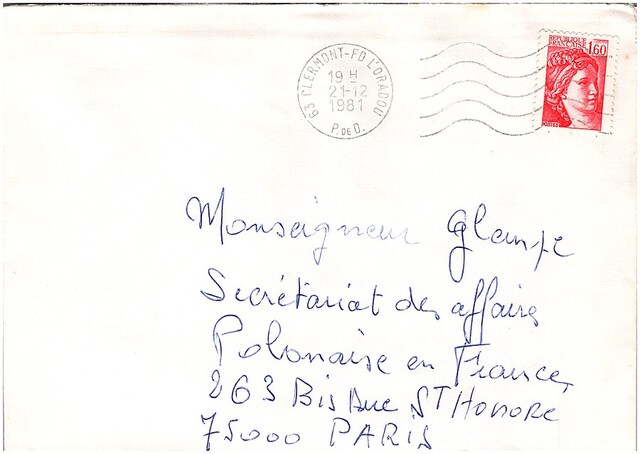 63 CLERMONT-FD L'ORADOU
19 H
21-12
1981
P. DE D.
REPUBLIQUE
FRANÇAISE
1,60
POSTES
Monseigneur
Secrétariat des affaires
Polonaise en France,
263 Bis Rue St HONORE
75000 PARIS